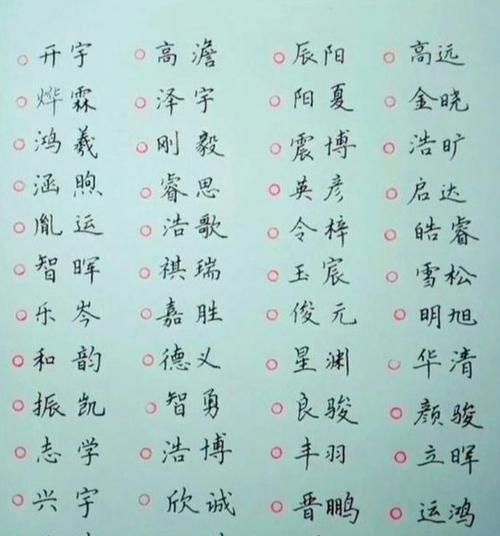 开宇 高澹 辰阳 高远
烨霖 泽宇 阳夏 金晓
鸿羲 刚毅 震博 浩旷
涵煦 睿思 英彦 启达
胤运 浩歌 令梓 皓睿
智晖 祺瑞 玉宸 雪松
乐岑 嘉胜 俊元 明旭
和韵 德义 星渊 华清
振凯 智勇 良骏 颜骏
志学 浩博 丰羽 立晖
兴宇 欣诚 晋鹏 运鸿